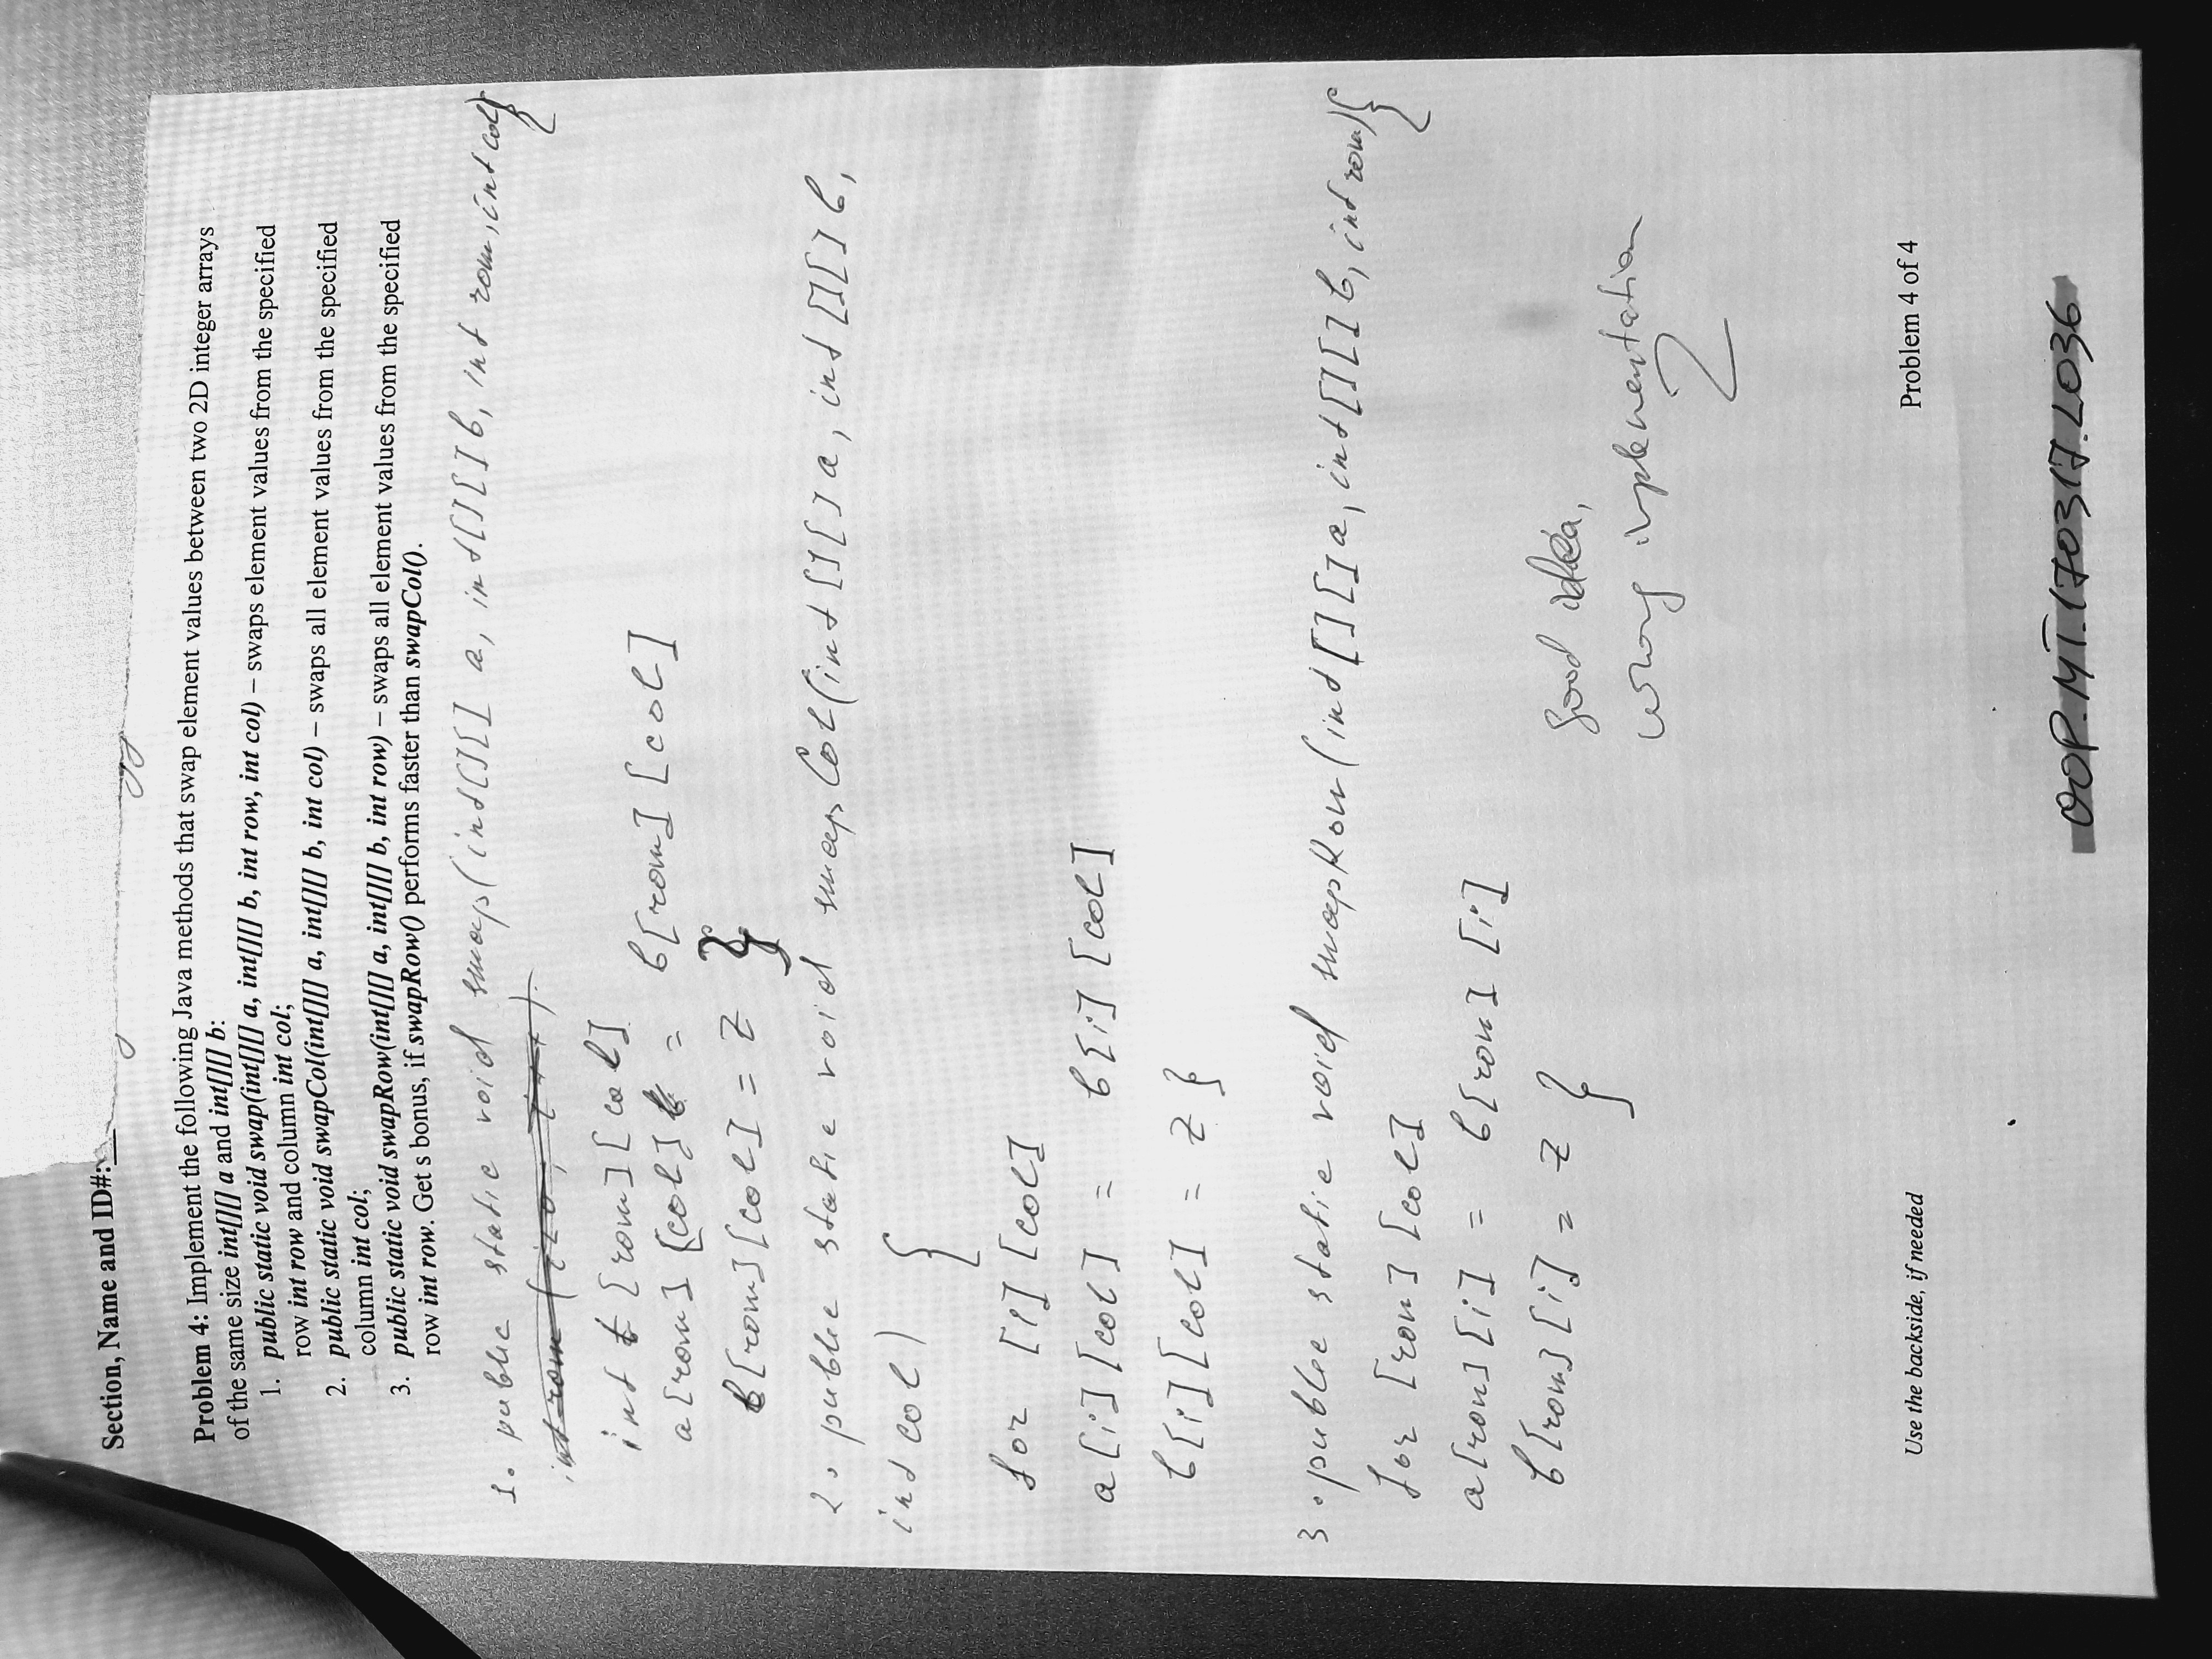 Section, Name and ID#:
Problem 4: Implement the following Java methods that swap element values between two 2D integer arrays
of the same size int[][] a and int[][] b:
1. public static void swap(int[][] a, int[][] b, int row, int col) – swaps element values from the specified
row int row and column int col;
2. public static void swapCol(int[][] a, int[][] b, int col) – swaps all element values from the specified
column int col;
3. public static void swapRow(int[][] a, int[][] b, int row) – swaps all element values from the specified
row int row. Get s bonus, if swapRow() performs faster than swapCol().
1. public static void swap(int[][] a, int[][] b, int row, int col){
int row (i<0; i++)
int t [row][col]
a[row][col] = b[row][col]
b[row][col] = z }
2. public static void swapCol(int[][] a, int[][] b,
int col) {
for [i][col]
a[i][col] = b[i][col]
b[i][col] = z }
3. public static void swapRow(int[][] a, int[][] b, int row){
for [row][col]
a[row][i] = b[row][i]
b[row][i] = z }
good idea,
wrong implementation
2
Use the backside, if needed
Problem 4 of 4
OOP.MT.170317.L036